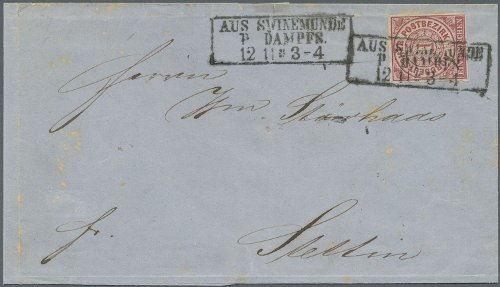 AUS SWINEMUNDE
P. DAMPFS.
12 11 3-4
POSTBEZIRK
AUS SWINEMUNDE
P. DAMPFS.
12 11 3-4
Herrn
Wm.
fr.
Stettin